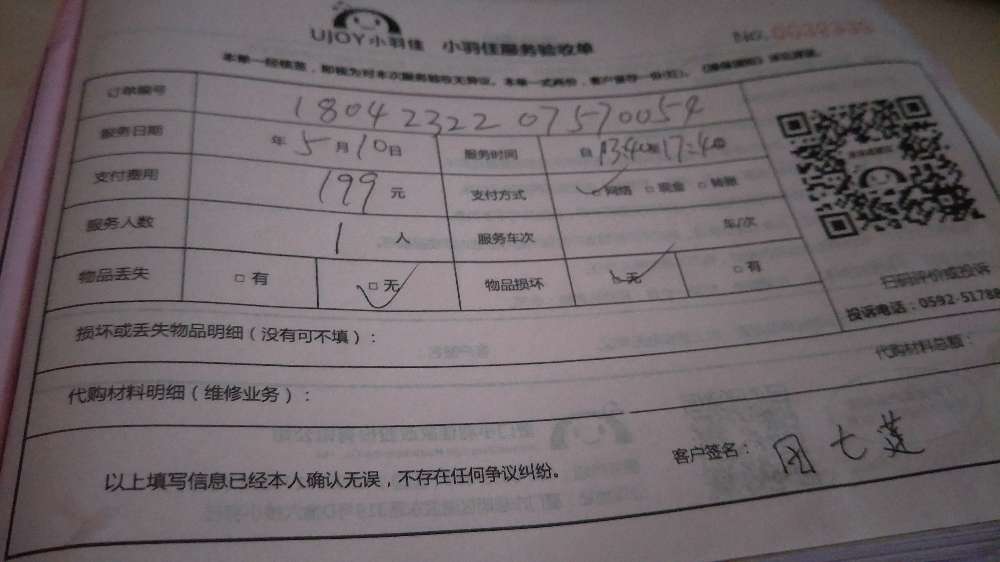 UJOY小羽佳 小羽佳服务验收单 No.
本单一经核签，即视为对本次服务验收无异议。本单一式两份，客户留存一份(红)。
订单编号 1804232207570054
服务日期 年 5 月 10 日 服务时间 自 13:40 至 17:40
支付费用 199 元 支付方式 □网络 □现金 □转账
服务人数 1 人 服务车次 车/次
物品丢失 □ 有 □ 无 物品损坏 □无 □有
扫码评价或投诉
投诉电话：0592-51788
损坏或丢失物品明细（没有可不填）：
代购材料明细（维修业务）： 代购材料总额：
以上填写信息已经本人确认无误，不存在任何争议纠纷。 客户签名： 七莲